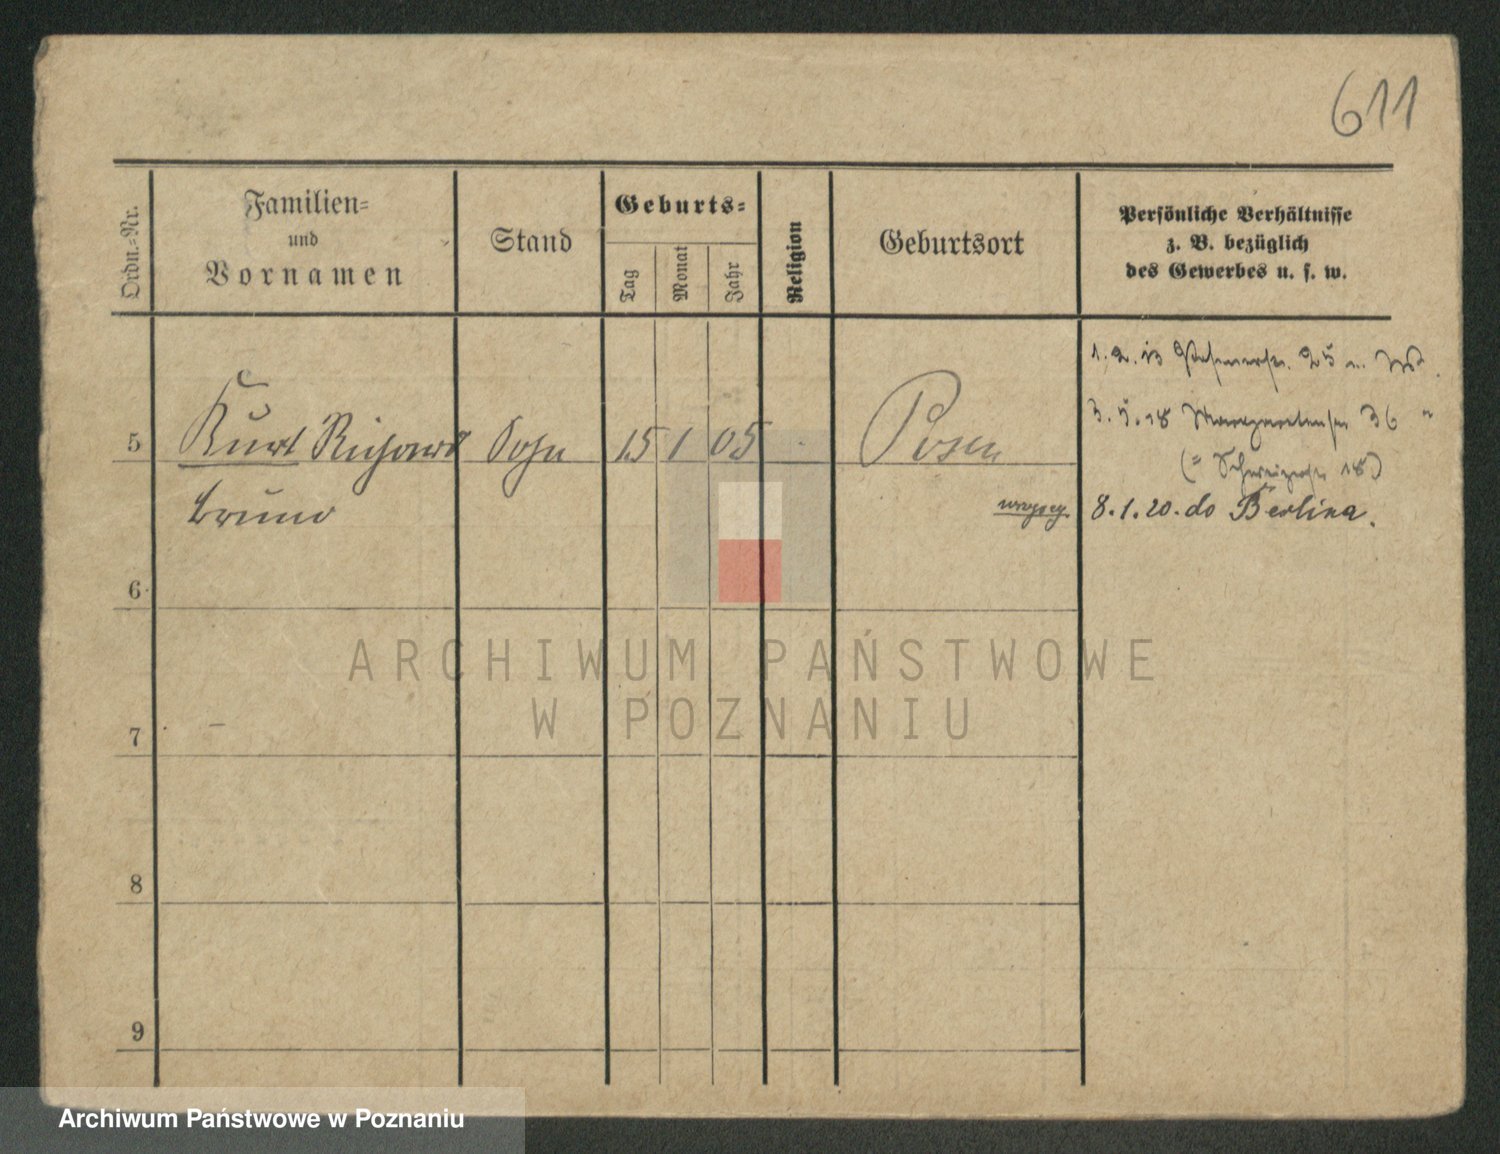 611
Ordn.-Nr.
Familien-
und
Vornamen
Stand
Geburts-
Tag
Monat
Jahr
Religion
Geburtsort
Persönliche Verhältnisse
z. B. bezüglich
des Gewerbes u. s. w.
1.2.13 25
5 Kurt Richard Sohn 15 1 05 Posen
3.5.18 36 "
Bruno
8.1.20. do Berlina.
6
7
8
9
ARCHIWUM PAŃSTWOWE
W POZNANIU
Archiwum Państwowe w Poznaniu